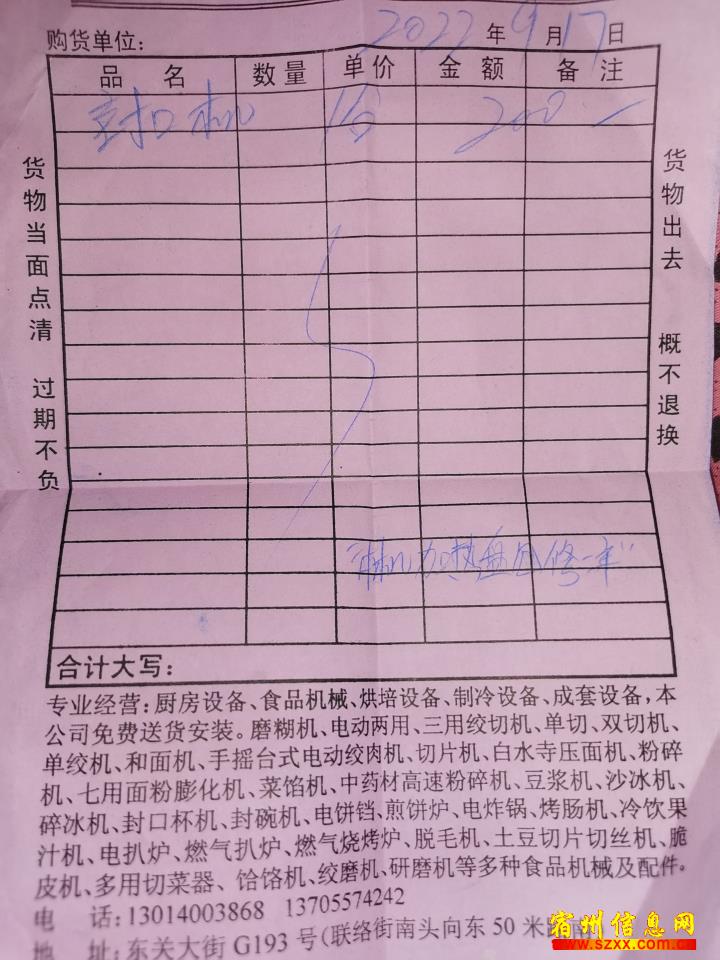 购货单位: 2022 年 9 月 17 日
品 名 数量 单价 金 额 备 注
封口机 1台 200-
货物当面点清 过期不负
货物出去 概不退换
加热盘包修一年"
合计大写:
专业经营:厨房设备、食品机械、烘培设备、制冷设备、成套设备,本
公司免费送货安装。磨糊机、电动两用、三用绞切机、单切、双切机、
单绞机、和面机、手摇台式电动绞肉机、切片机、白水寺压面机、粉碎
机、七用面粉膨化机、菜馅机、中药材高速粉碎机、豆浆机、沙冰机、
碎冰机、封口杯机、封碗机、电饼铛、煎饼炉、电炸锅、烤肠机、冷饮果
汁机、电扒炉、燃气扒炉、燃气烧烤炉、脱毛机、土豆切片切丝机、脆
皮机、多用切菜器、饸饹机、绞磨机、研磨机等多种食品机械及配件。
电 话:13014003868 13705574242
地 址:东关大街 G193 号(联络街南头向东 50 米路南)
宿州信息网
www.szxx.com.cn